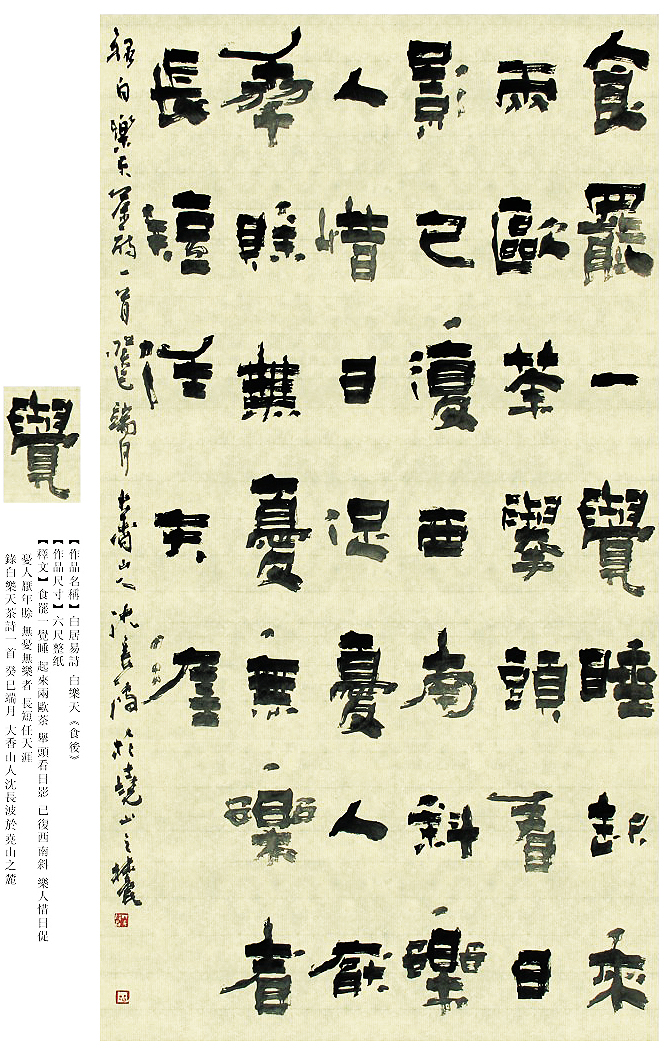 食罷一覺睡起來
兩歐茶舉頭看日
影已復西南斜樂
人惜日促憂人厭
年賒無憂無樂者
長短任天涯
録白樂天茶詩一首癸巳端月大香山人沈長波於堯山之麓
覺
【作品名稱】白居易詩 白樂天《食後》
【作品尺寸】六尺整纸
【釋文】食罷一覺睡 起來兩歐茶 舉頭看日影 已復西南斜 樂人惜日促
憂人厭年賒 無憂無樂者 長短任天涯
錄白樂天茶詩一首 癸巳端月 大香山人沈長波於堯山之麓